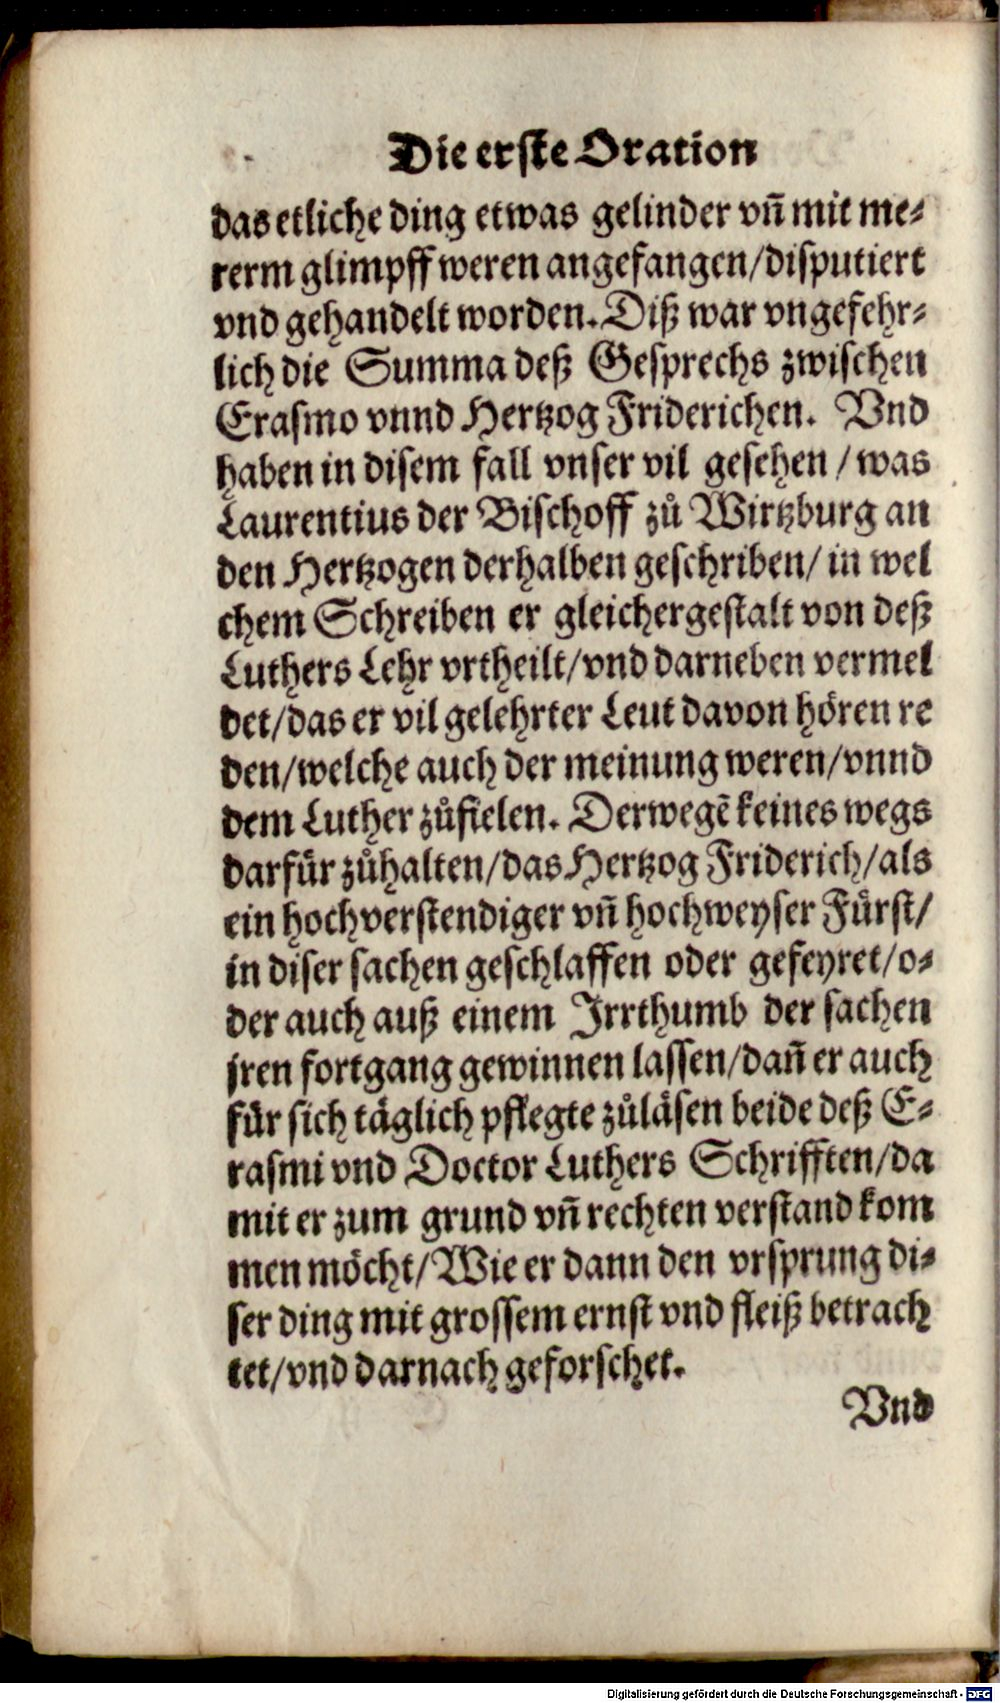 Die erste Oration
das etliche ding etwas gelinder vñ mit me⸗
rerm glimpff weren angefangen/disputiert
vnd gehandelt worden. Diß war vngefehr⸗
lich die Summa deß Gesprechs zwischen
Erasmo vnnd Hertzog Friderichen. Vnd
haben in disem fall vnser vil gesehen / was
Laurentius der Bischoff zů Wirtzburg an
den Hertzogen derhalben geschriben/ in wel
chem Schreiben er gleichergestalt von deß
Luthers Lehr vrtheilt/vnd darneben vermel
det/das er vil gelehrter Leut davon hören re
den/welche auch der meinung weren/vnnd
dem Luther zůfielen. Derwegē keines wegs
darfür zůhalten/das Hertzog Friderich/als
ein hochverstendiger vñ hochweyser Fürst/
in diser sachen geschlaffen oder gefeyret/o⸗
der auch auß einem Irrthumb der sachen
jren fortgang gewinnen lassen/dañ er auch
für sich täglich pflegte zůläsen beide deß E⸗
rasmi vnd Doctor Luthers Schrifften/da
mit er zum grund vñ rechten verstand kom
men möcht/Wie er dann den vrsprung di⸗
ser ding mit grossem ernst vnd fleiß betrach
tet/vnd darnach geforschet.
Vnd
Digitalisierung gefördert durch die Deutsche Forschungsgemeinschaft - DFG